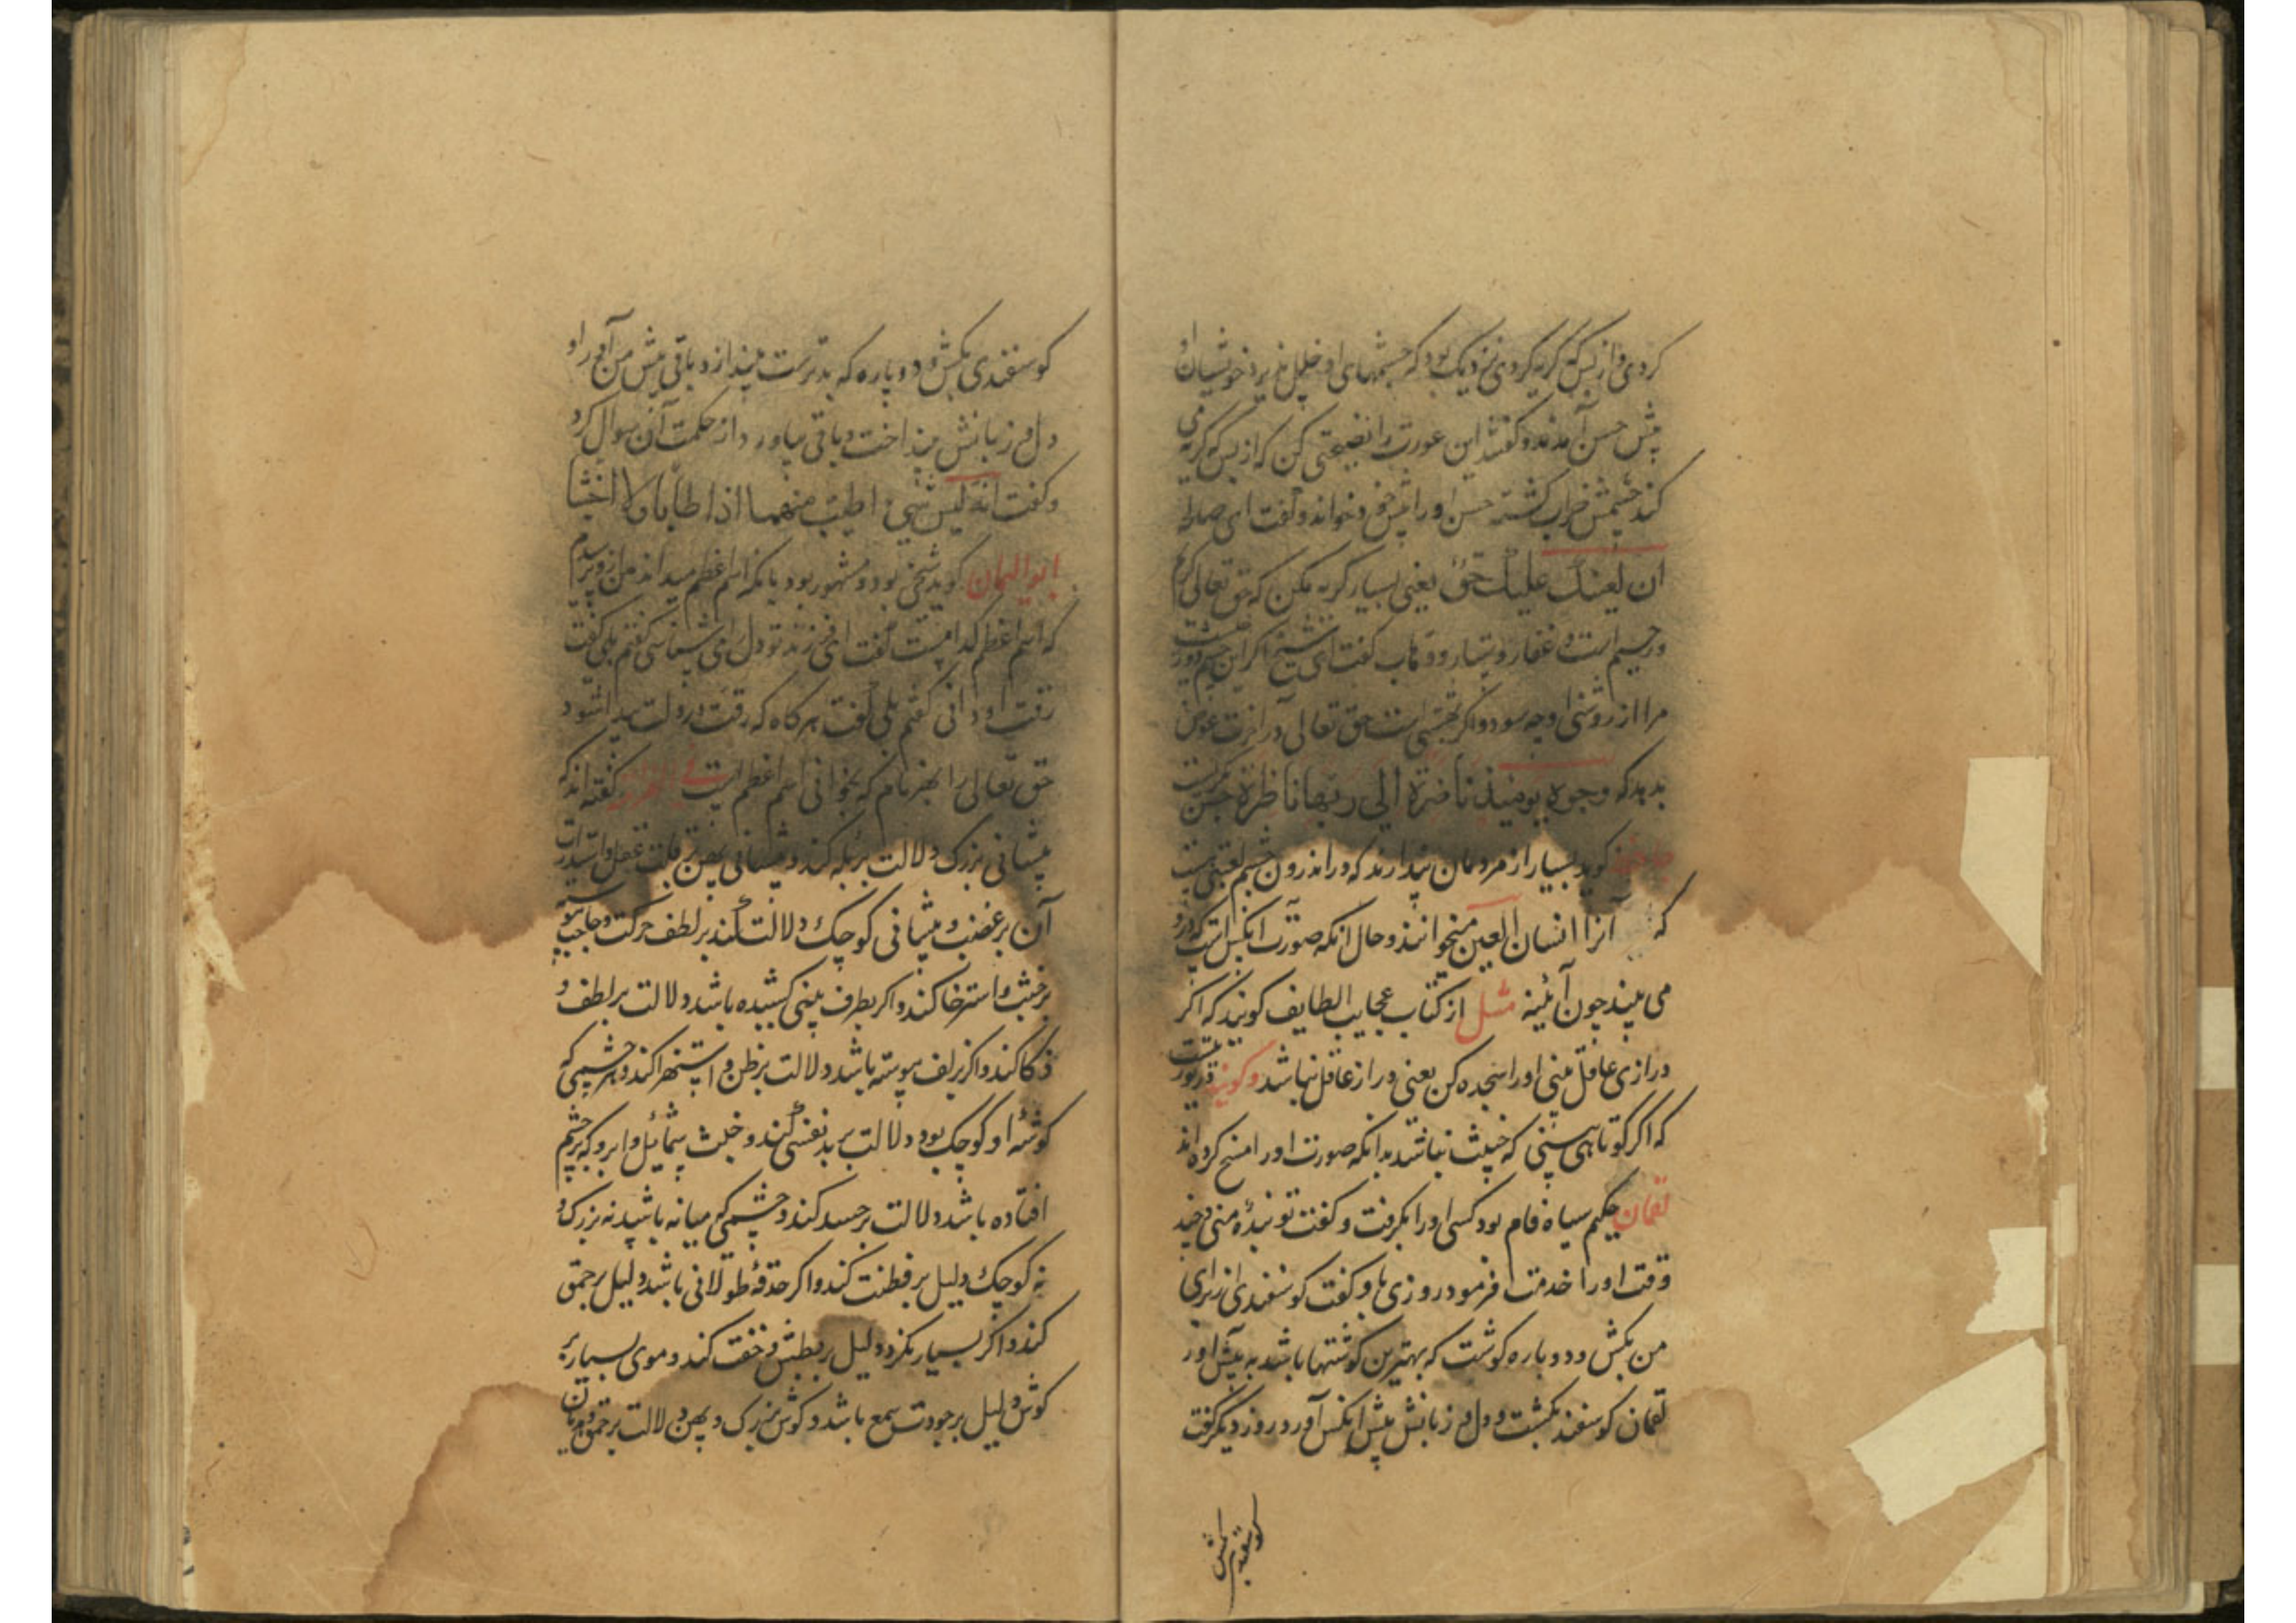 کردی و از بس گریه کردی نزدیک بود که چشمهای او خلل پذیرد خویشان او
پیش حسن آمدند و گفتند این عورت را نصیحتی کن که از بس که گریه می
کند چشمش خراب گشته حسن او را پیش خود خواند و گفت ای صالحه
ان لعینک علیک حق یعنی بسیار گریه مکن که حق تعالی کریم
و رحیم است و غفار و ستار و وهاب گفت ای شیخ اگر این چشم
مرا از روشنی او چه سود و اگر است حق تعالی در آخرت عوض
بدهد که وجوه یومئذ ناضرة الی ربها ناظرة حسن
گوید بسیار از مردمان پندارند که در اندرون چشم لعبتی هست
که آنرا انسان العین میخوانند و حال آنکه صورت آنکس است که درو
می بیند چون آئینه مثل از کتاب عجایب الطایف گویند که اگر
درازی عاقل بینی او را سجده کن یعنی دراز عاقل نباشد و گویند
که اگر کوتاهی بینی که خبیث نباشد بدانکه صورت او را مسخ کرده اند
لقمان حکیم سیاه فام بود کسی او را بگرفت و گفت تو بندهٔ منی و چند
وقت او را خدمت فرمود روزی با او گفت کوسفندی از برای
من بکش و دو پاره کوشت که بهترین کوشتها باشد به پیش آور
لقمان کوسفند بکشت و دل و زبانش پیش آنکس آورد روز دیگر گفت
کوسفندی بکش
کوسفندی بکش و دو پاره که بدترست بینداز و باقی پیش من آور او
دل و زبانش بینداخت و باقی بیاورد از حکمت آن سوال کرد
و گفت انه لیس شیء اطیب منهما اذا طابا و لا اخبث
ابو الیمان گوید شخی بود و مشهور بود بآنکه اسم اعظم میداند من ازو پرسیدم
که اسم اعظم کدامست گفت ای فرزند تو دل را می شناسی گفتم بلی گفت
رقت او دانی گفتم بلی گفت هر گاه که رقت در دلت پیدا شود
حق تعالی را بهر نام که بخوانی اسم اعظم است گفته اند که
پیشانی بزرگ دلالت بر بله کند و پیشانی پهن بر قلت عقل و
آن بر غضب و پیشانی کوچک دلالت کند بر لطف حرکت و حاجب
بر خبث و استرخا کند و اگر بطرف بینی کشیده باشد دلالت بر لطف و
ذکا کند و اگر بزلف پیوسته باشد دلالت بر ظن و استهزا کند و هر چشمی که
گوشهٔ او کوچک بود دلالت بر بدنفسی کند و خبث شمائل و ابرو که بر چشم
افتاده باشد دلالت بر حسد کند و چشمی که میانه باشد نه بزرگ و
نه کوچک دلیل بر فطنت کند و اگر حدقهٔ طولانی باشد دلیل بر حمق
کند و اگر بسیار نکرد دلیل بر بطش و خفت کند و موی بسیار بر
گوش دلیل بر جودت سمع باشد و گوش بزرگ و پهن دلالت بر حمق و هذیان